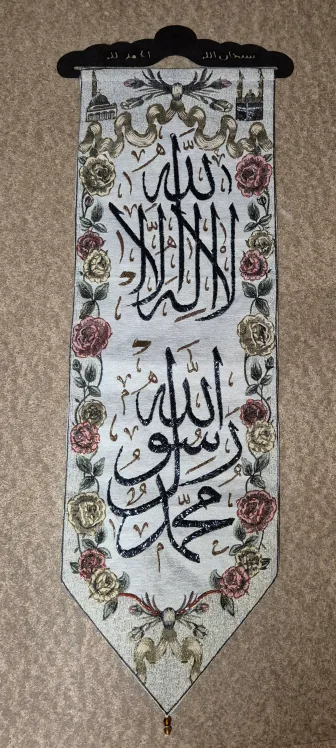 سبحان الله الحمد لله
لا إله إلا الله
محمد رسول الله